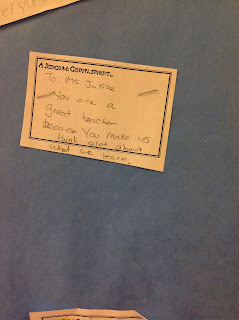 eryou
A Sincere Compliment...
To: Ms
You are a
great teacher
Because You make us
think alot about
what we learn.